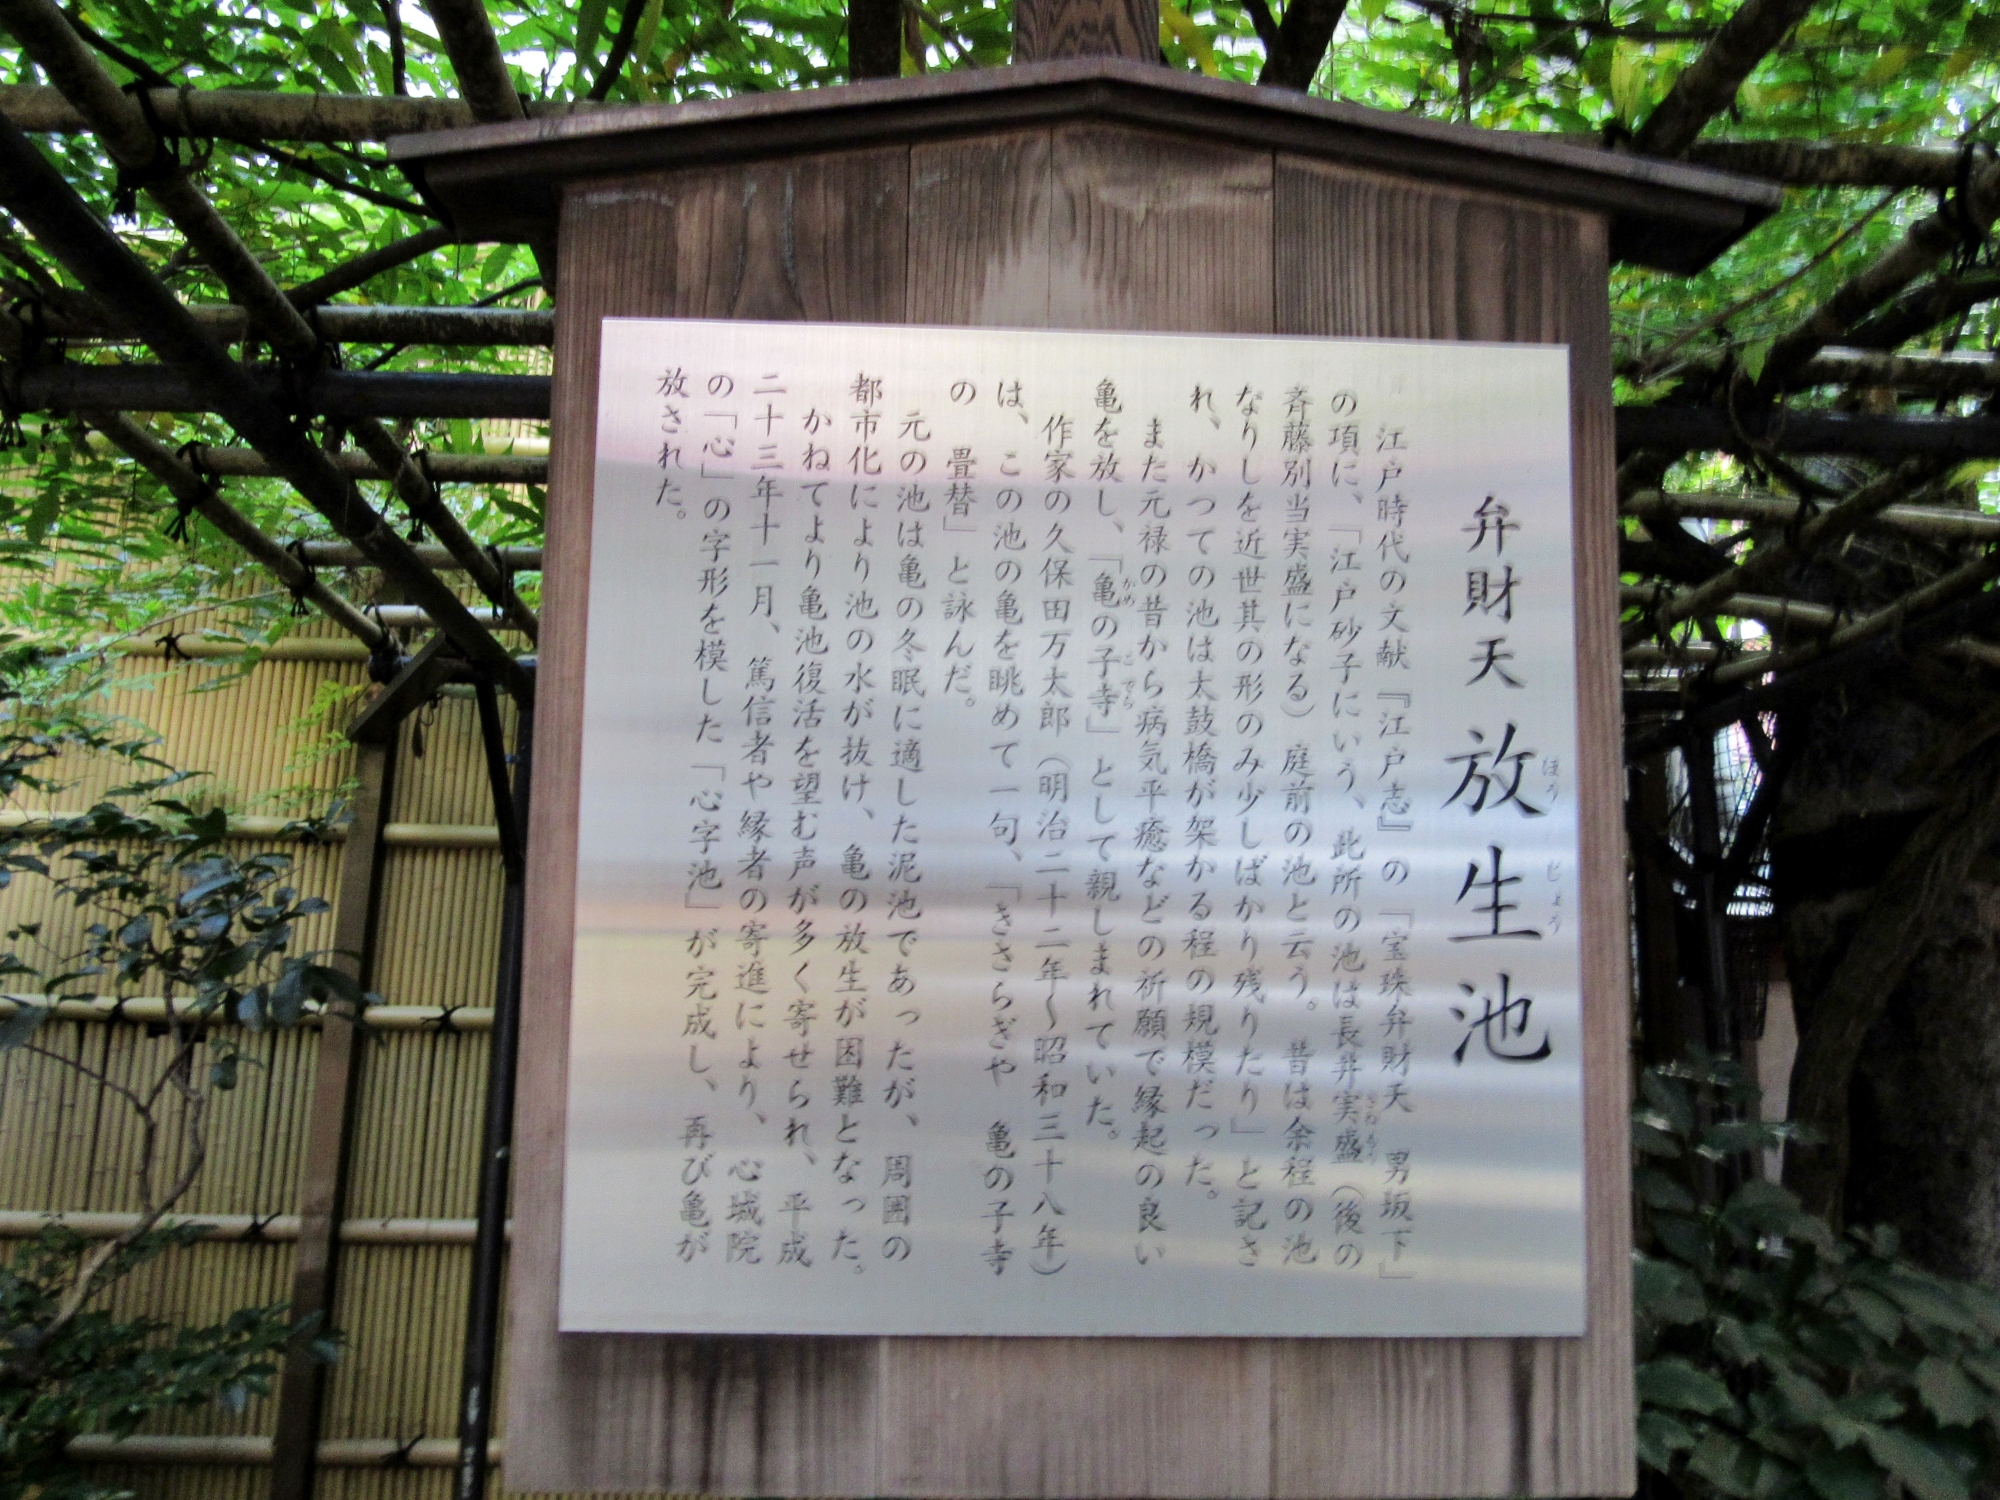 弁財天 放生池
ほう じょう
江戸時代の文献『江戸志』の「宝珠弁財天 男坂下」
の項に、「江戸砂子にいう、此所の池は長井実盛（後の
さねもり
斉藤別当実盛になる）庭前の池と云う。昔は余程の池
なりしを近世其の形のみ少しばかり残りたり」と記さ
れ、かつての池は太鼓橋が架かる程の規模だった。
また元禄の昔から病気平癒などの祈願で縁起の良い
亀を放し、「亀の子寺」として親しまれていた。
かめ こ でら
作家の久保田万太郎（明治二十二年～昭和三十八年）
は、この池の亀を眺めて一句、「きさらぎや 亀の子寺
の 畳替」と詠んだ。
元の池は亀の冬眠に適した泥池であったが、周囲の
都市化により池の水が抜け、亀の放生が困難となった。
かねてより亀池復活を望む声が多く寄せられ、平成
二十三年十一月、篤信者や縁者の寄進により、心城院
の「心」の字形を模した「心字池」が完成し、再び亀が
放された。